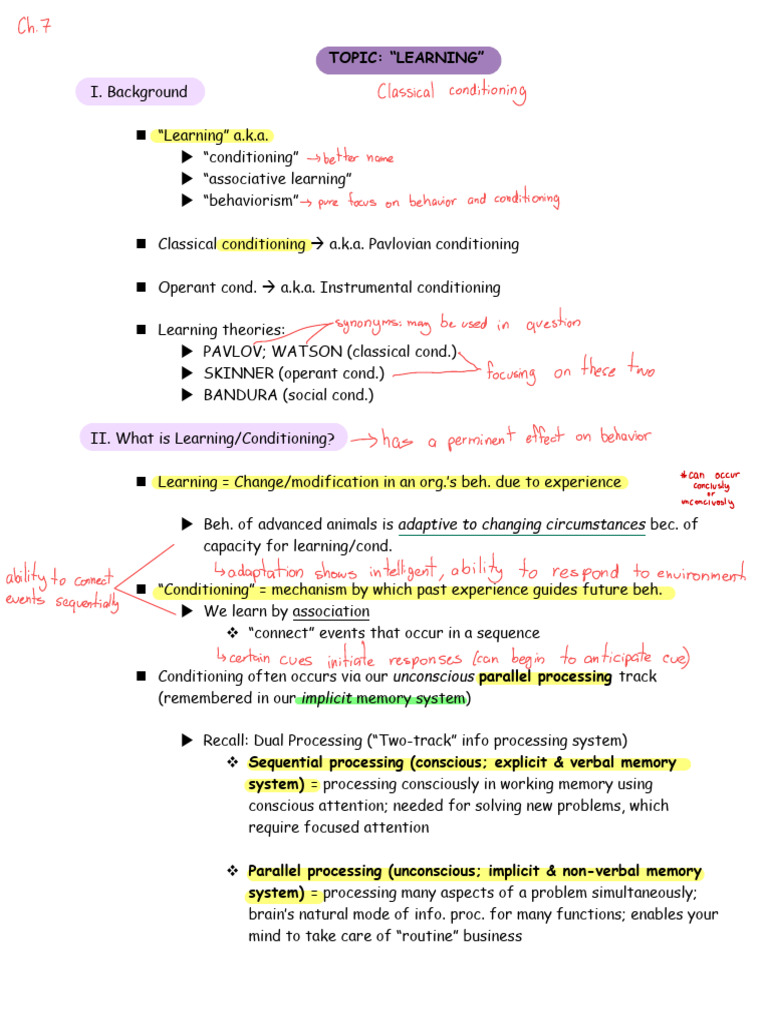 Ch.7
TOPIC: “LEARNING”
I. Background
Classical conditioning
■ “Learning” a.k.a.
▶ “conditioning” →better name
▶ “associative learning”
▶ “behaviorism” → pure focus on behavior and conditioning
■ Classical conditioning → a.k.a. Pavlovian conditioning
■ Operant cond. → a.k.a. Instrumental conditioning
■ Learning theories:
synonyms: may be used in question
▶ PAVLOV; WATSON (classical cond.)
▶ SKINNER (operant cond.)
focusing on these two
▶ BANDURA (social cond.)
II. What is Learning/Conditioning? → has a perminent effect on behavior
■ Learning = Change/modification in an org.’s beh. due to experience
*can occur
conciusly
or
unconciuosly
▶ Beh. of advanced animals is adaptive to changing circumstances bec. of
capacity for learning/cond.
↳adaptation shows intelligent, ability to respond to environment
ability to connect
events sequentially
■ “Conditioning” = mechanism by which past experience guides future beh.
▶ We learn by association
❖ “connect” events that occur in a sequence
↳certain cues initiate responses (can begin to anticipate cue)
■ Conditioning often occurs via our unconscious parallel processing track
(remembered in our implicit memory system)
▶ Recall: Dual Processing (“Two-track” info processing system)
❖ Sequential processing (conscious; explicit & verbal memory
system) = processing consciously in working memory using
conscious attention; needed for solving new problems, which
require focused attention
❖ Parallel processing (unconscious; implicit & non-verbal memory
system) = processing many aspects of a problem simultaneously;
brain’s natural mode of info. proc. for many functions; enables your
mind to take care of “routine” business